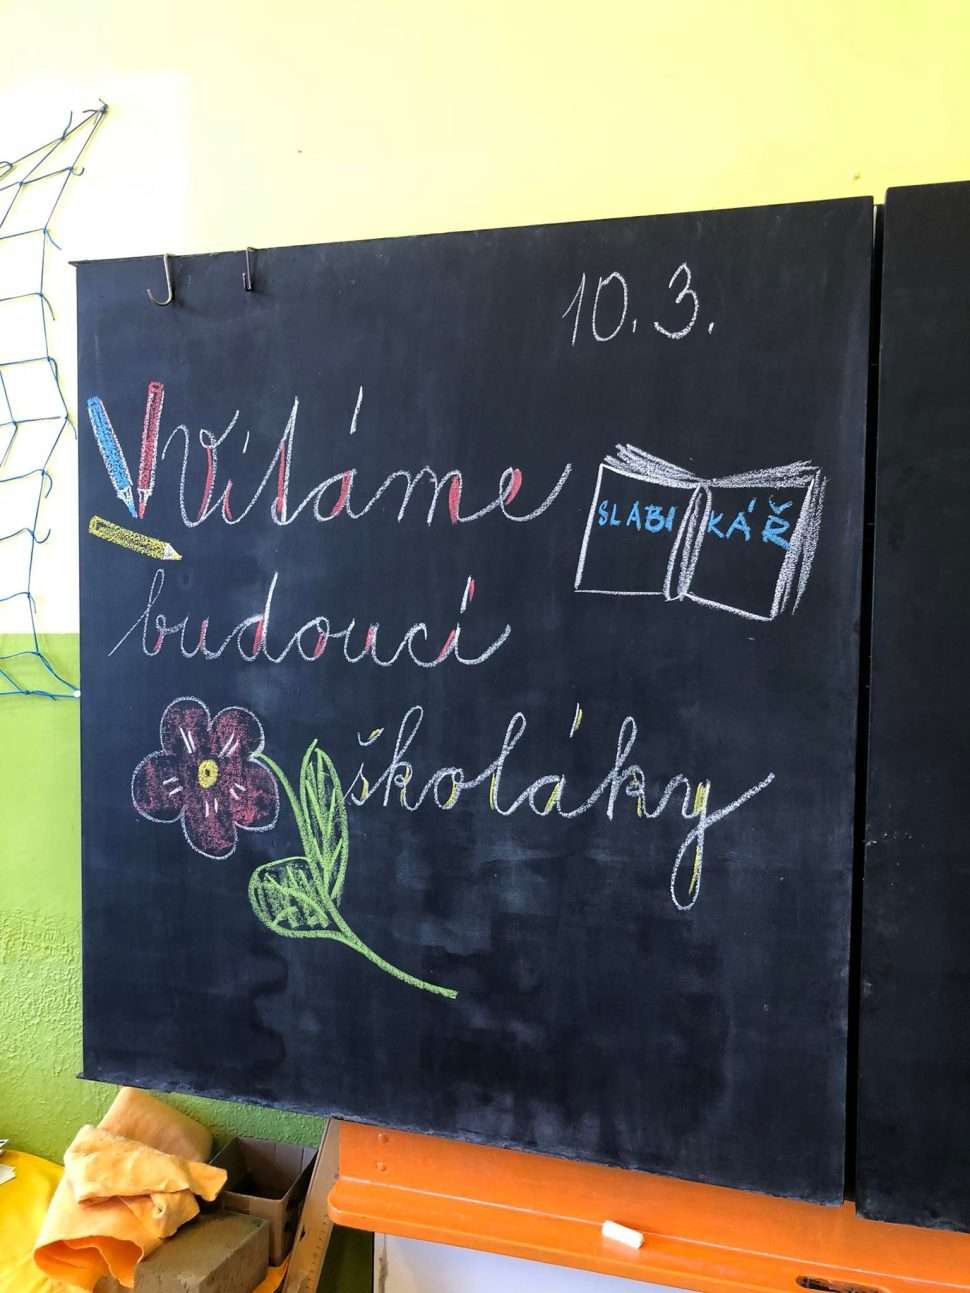 10.3.
Vítáme
SLABIKÁŘ
budoucí
školáky